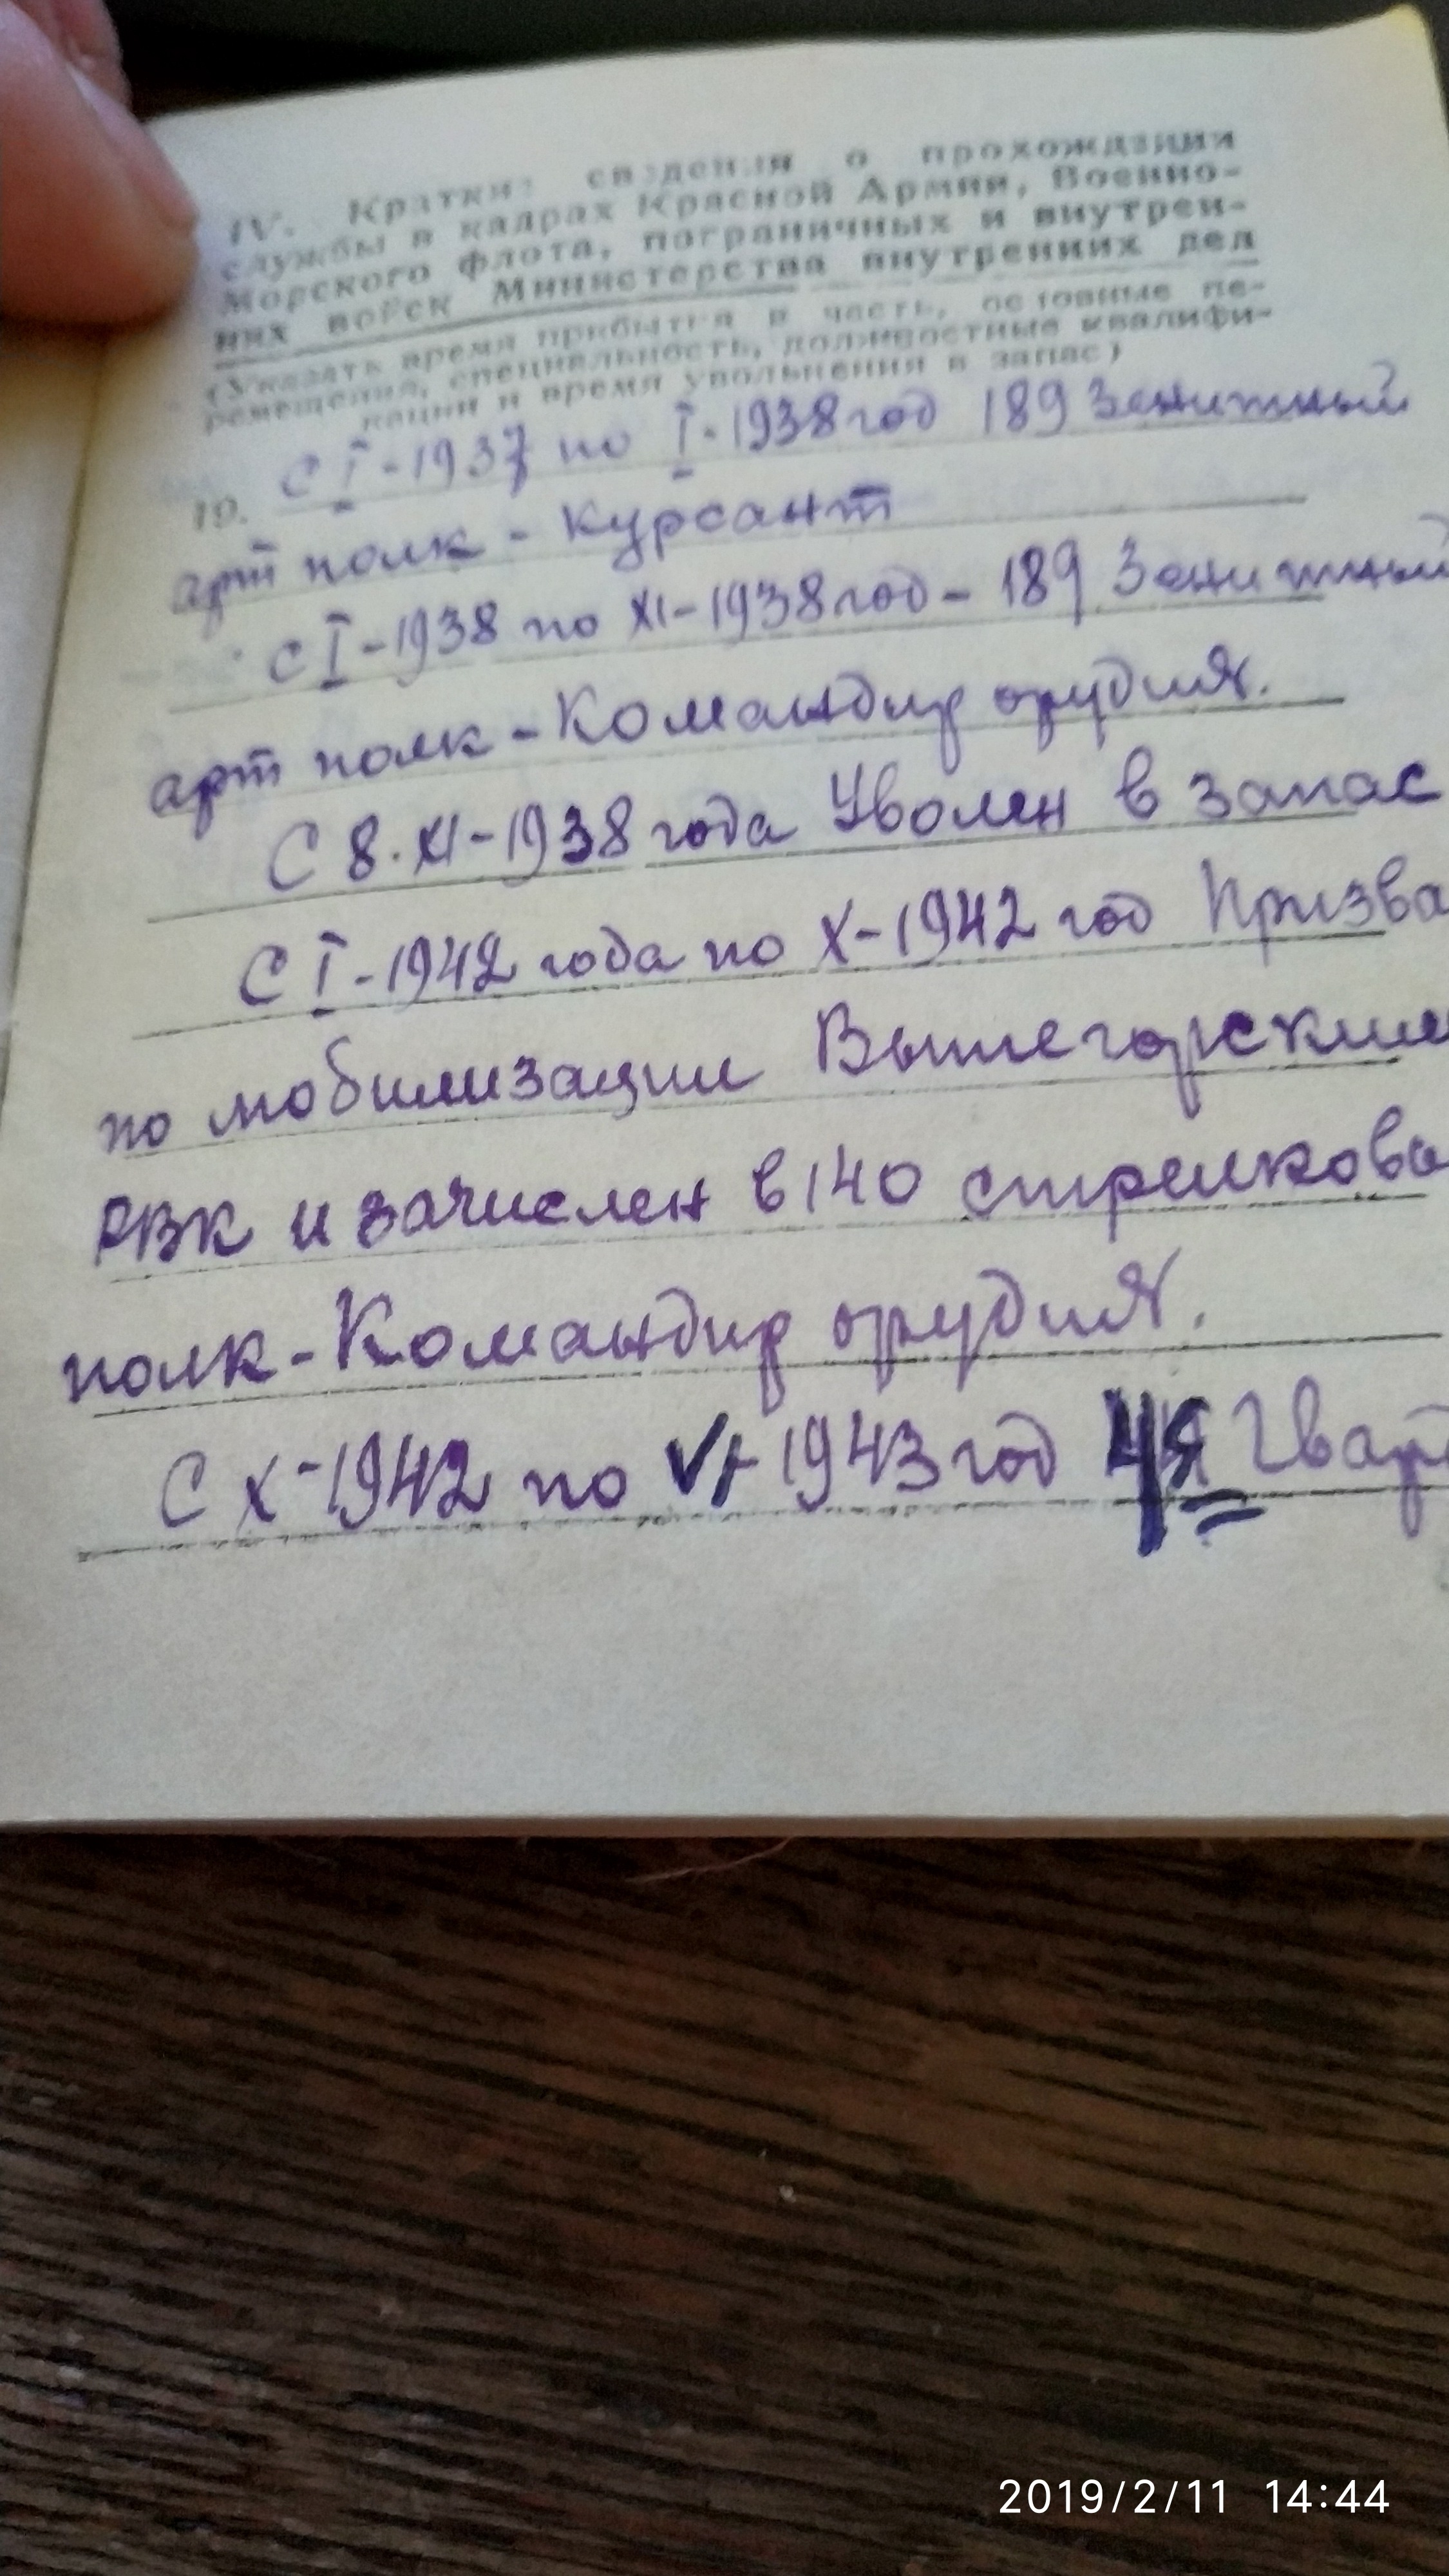 IV. Краткие сведения о прохождении
службы в кадрах Красной Армии, Военно-
Морского флота, пограничных и внутрен-
них войск Министерства внутренних дел
(Указать время прибытия в часть, основные пе-
ремещения, специальность, должностные квалифи-
кации и время увольнения в запас)
19. С I-1937 по I-1938 год 189 Зенитный
арт полк - Курсант
С I-1938 по XI-1938 год - 189 Зенитный
арт полк - Командир орудия.
С 8.XI-1938 года Уволен в запас
С I-1942 года по X-1942 год Призва
по мобилизации Вытегорским
РВК и зачислен в 140 стрелковы
полк - Командир орудия.
С X-1942 по VI 1943 год 4я Гвар
2019/2/11 14:44